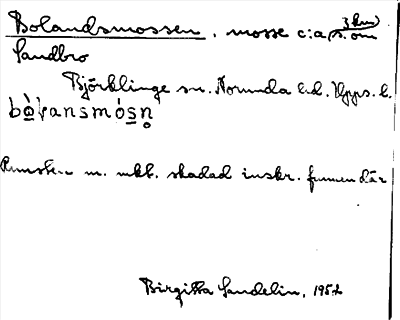 Bolandsmossen. mosse c:a 3 km s. om
Sandbro
Björklinge sn. Norunda hd. Upps. l.
bò̱lansmós̱n̥
Runsten m. mkt. skadad inskr. funnen där
Birgitta Sundelin, 1952